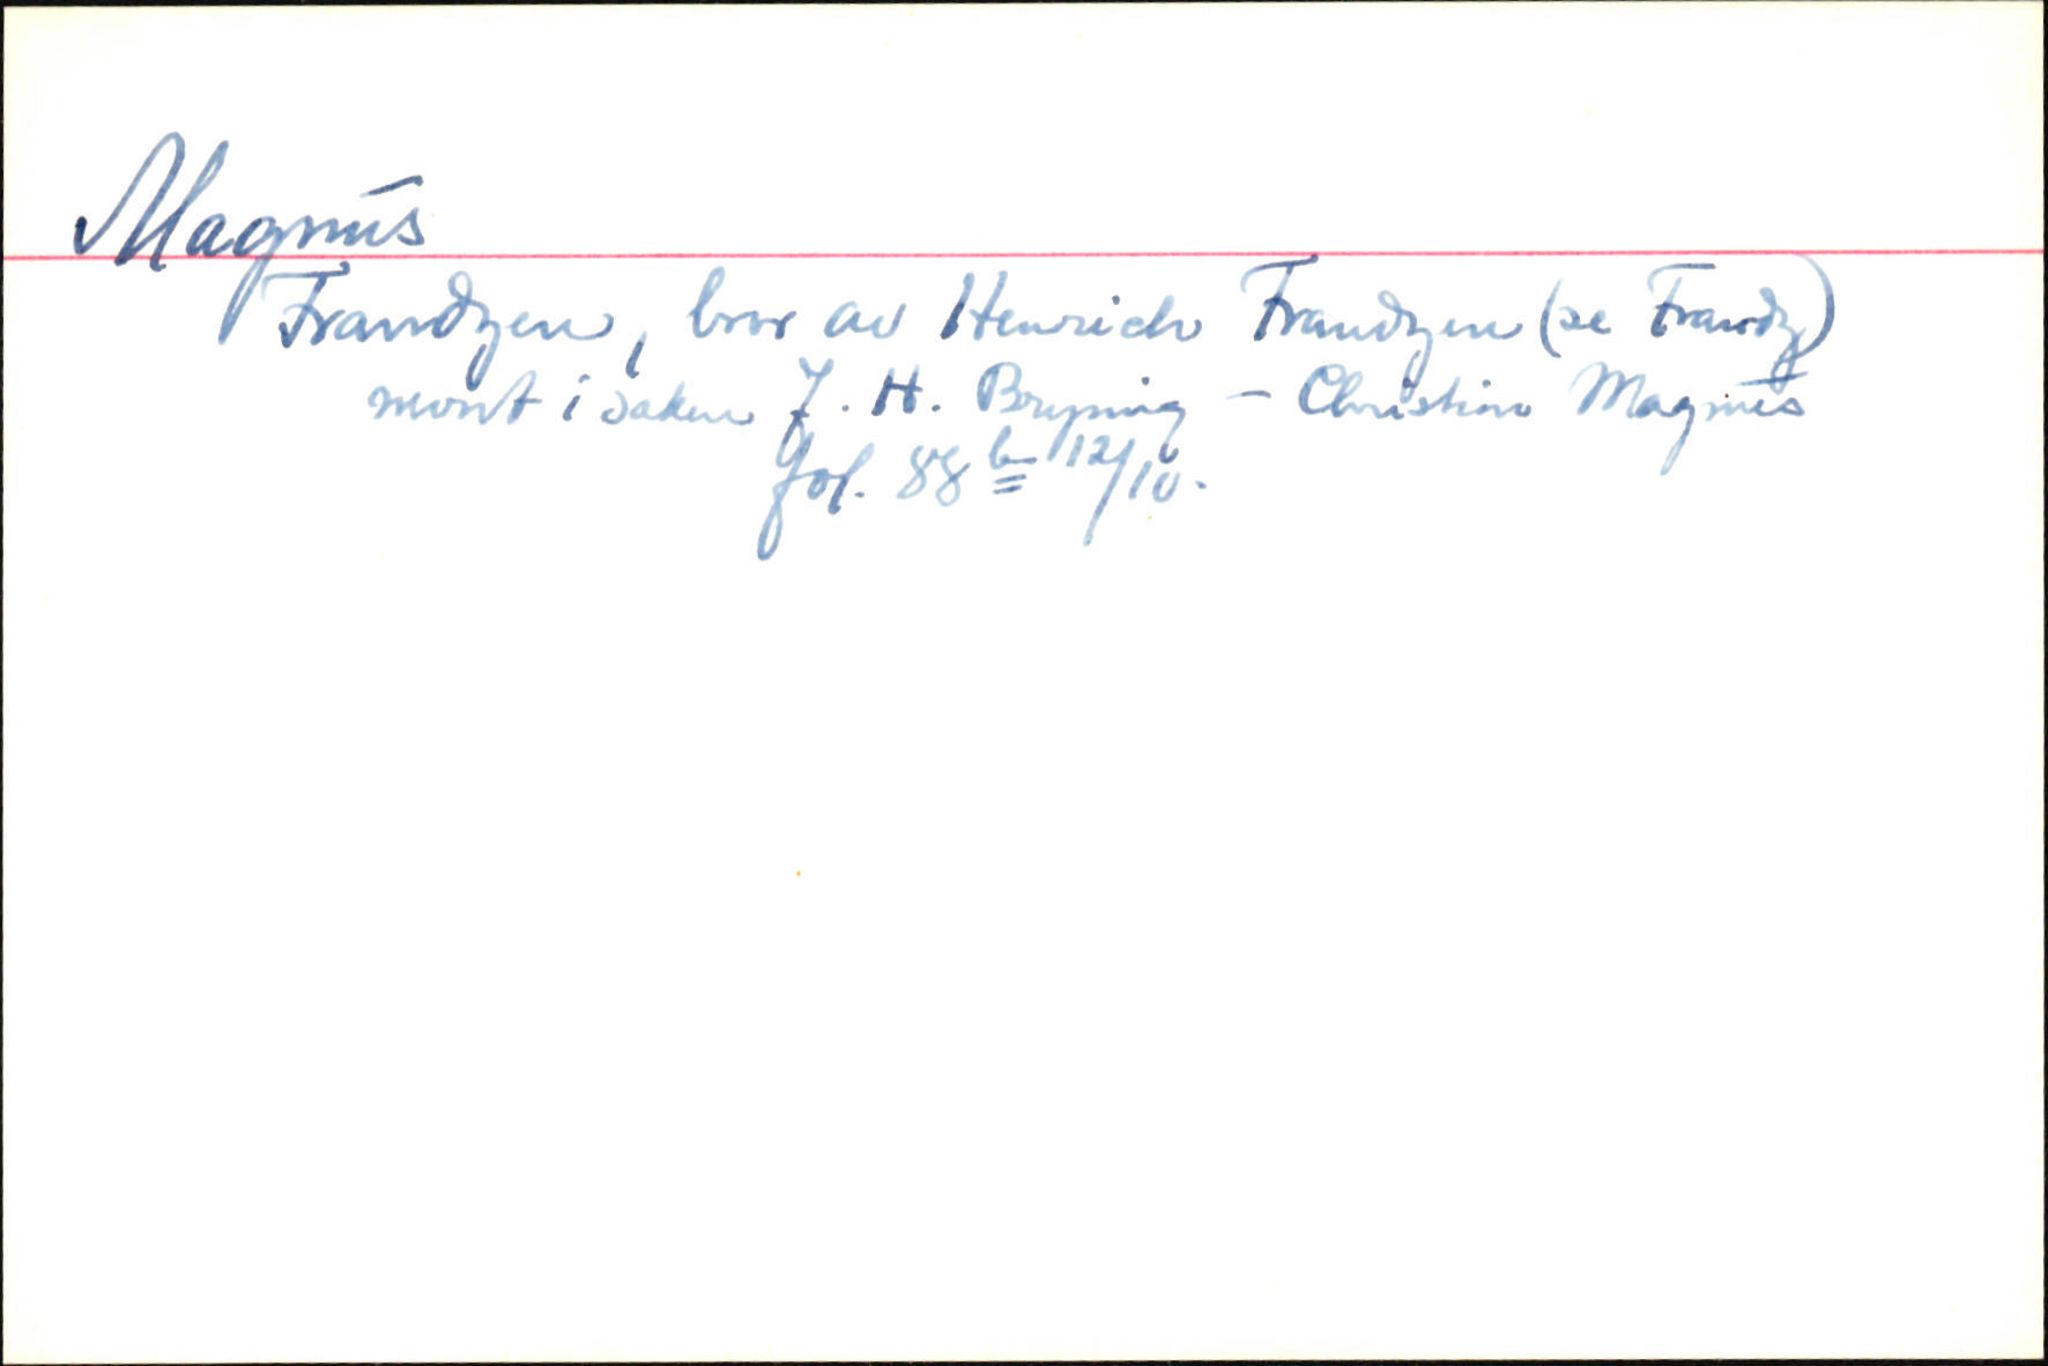 Magnus
Frandzen, bror av Henrich Frandzen (se Frandz)
nevnt i saken J. H. Bryning – Christian Magnus
fol. 88 b 12/10.